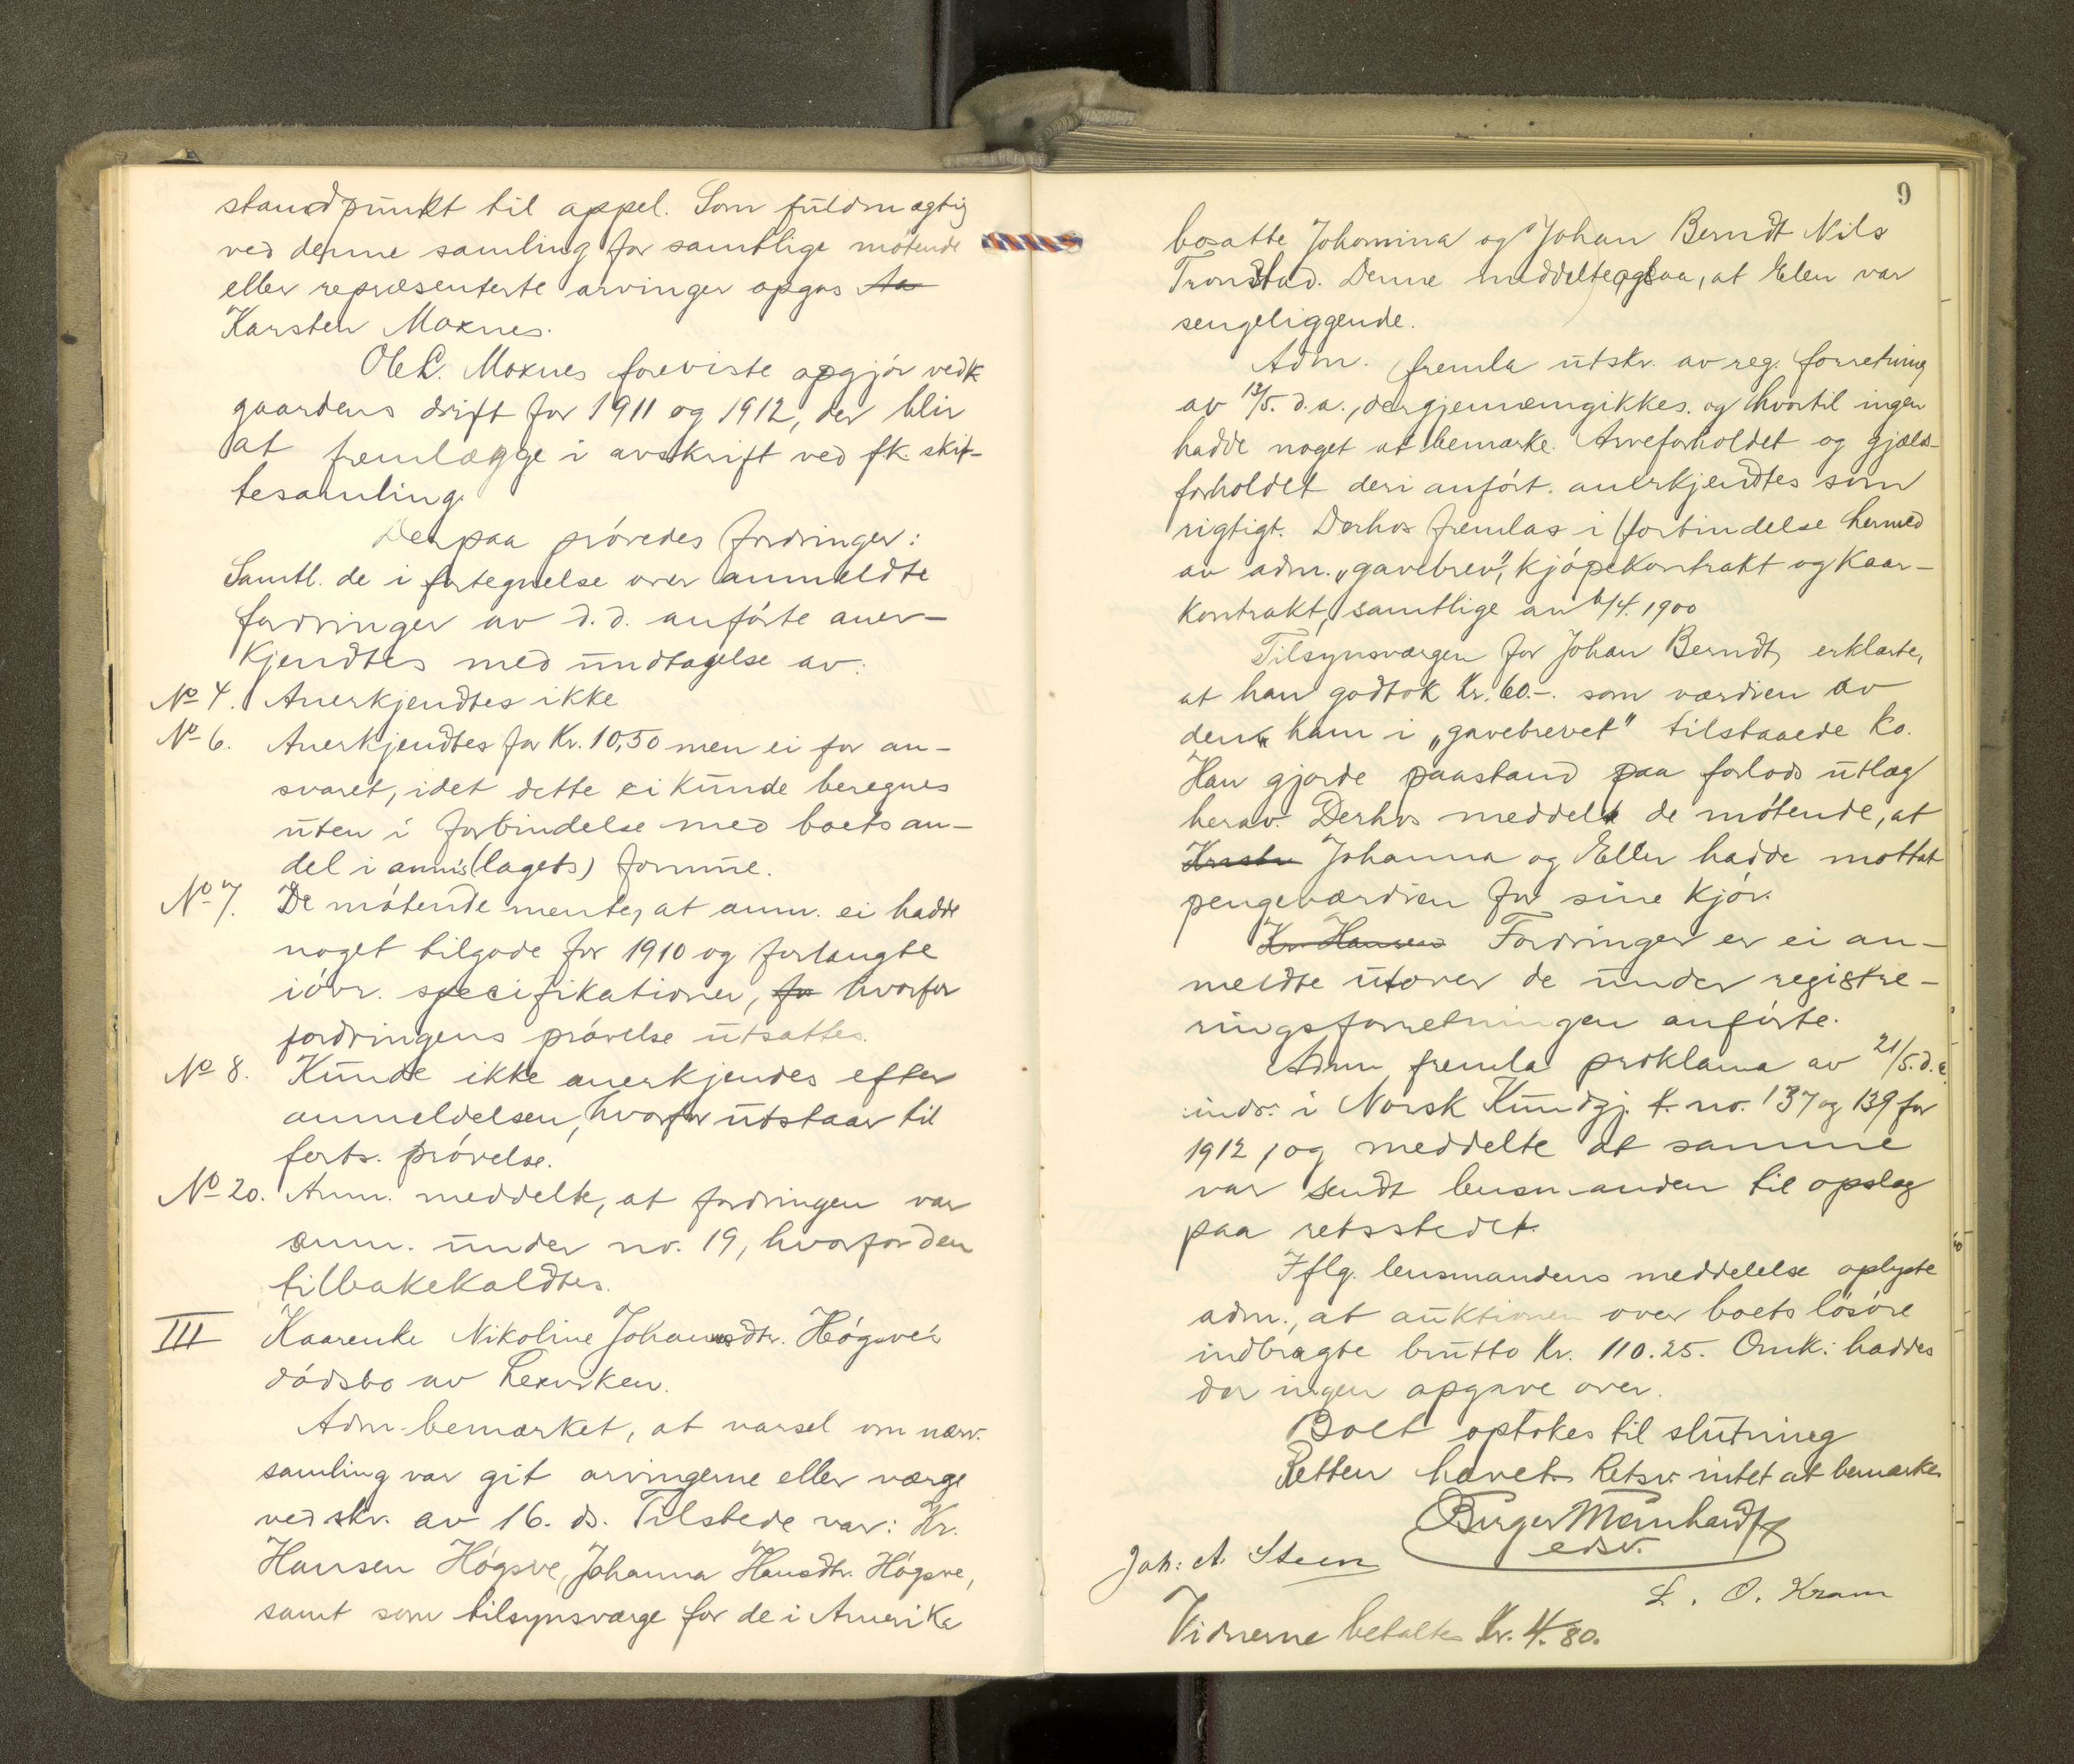 standpunkt til appel. Som fuldmægtig
ved denne samling for samtlige møtende
eller repræsenterte arvinger opgas Aa
Karsten Moxnes.
Ole L. Moxnes foreviste opgjør vedk
gaardens drift for 1911 og 1912, der blir
at fremlægge i avskrift ved fk. skif-
tesamling.
Derpaa prøvedes fordringer:
Samtl. de i fortegnelse over anmeldte
fordringer av d.d. anførte aner-
kjendtes med undtagelse av:
No 4. Anerkjendtes ikke
No 6. Anerkjendtes for Kr. 10,50 men ei for an-
svaret, idet dette ei kunde beregnes
uten i forbindelse med boets an-
del i anm's (lagets) formue.
No 7. De møtende mente, at anm. ei hadde
noget tilgode for 1910 og forlangte
iøvr. specifikationer, for hvorfor
fordringens prøvelse utsattes.
No 8. Kunde ikke anerkjendes efter
anmeldelsen, hvorfor utstaar til
forts. prøvelse.
No 20. Anm. meddelte, at fordringen var
anm. under no. 19, hvorfor den
tilbakekaldtes.
III Kaarenke Nikoline Johannsdtr. Høgsve's
dødsbo av Lexviken.
Adm. bemærket, at varsel om nærv.
samling var git arvingerne eller værge
ved skr. av 16. ds. Tilstede var: Kr.
Hansen Høgsve, Johanna Hansdtr. Høgsve,
samt som tilsynsværge for de i Amerika
9
bosatte Johomina og Johan Berndt Nils
Tronstad. Denne meddelte ogsaa, at Elen var
sengeliggende.
Adm. fremla utskr. av reg. forretning
av 12/5. d.a., der gjennemgikkes. og hvortil ingen
hadde noget at bemærke. Arveforholdet og gjælds-
forholdet deri anført. anerkjendtes som
rigtigt. Derhos fremlas i forbindelse hermed
av adm. „gavebrev", kjøpekontrakt og Kaar-
kontrakt, samtlige av 6/4. 1900
Tilsynsværgen for Johan Berndt, erklærte,
at han godtok Kr. 60.-. som værdien av
den ham i „gavebrevet" tilstaaede ko.
Han gjorde paastand paa forlods utlæg
herav. Derhos meddelte de møtende, at
Johanna og Ellen hadde mottat
pengeværdien for sine kjør.
Kr. Hansen Fordringer er ei an-
meldte utover de under registre-
ringsforretningen anførte.
Adm. fremla proklama av 21/5. d.a.
indr. i Norsk Kundgj. t. no. 137 og 139 for
1912, og meddelte at samme
var sendt lensmanden til opslag
paa retsstedet.
Iflg. lensmandens meddelelse oplyste
adm., at auktionen over boets løsøre
indbragte brutto Kr. 110.25. Omk. haddes
der ingen opgave over.
Boet optokes til slutning
Retten hævet. Retsv. intet at bemærke.
Birger Meinhardt
edsv.
Joh: A. Steen
L. O. Kram
Vidnerne betaltes Kr. 4.80.